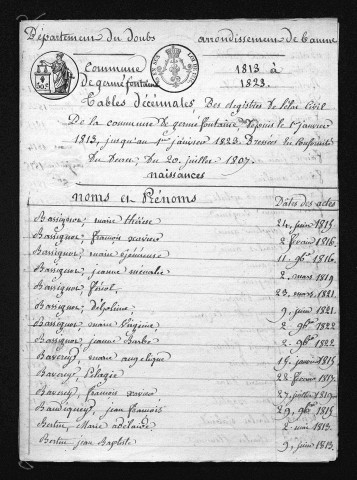 Département du doubs arrondissement de baume
Commune
de germéfontaine
1813 à
1823.
Tables décennales, Des registres de l'état civil
De la commune De germéfontaine, depuis le 1er janvier
1813, jusqu'au 1er janvier 1823. Dressées en conformité
Du Decret Du 20 juillet 1807.
naissances
noms et Prénoms Dates des actes
Bassignot, marie thérese 24. juin 1815
Bassignot, francois xavier 2 fevrier 1816.
Bassignot, marie 11. 9bre 1816.
Bassignot, jeanne 2. mars 1819
Bassignot, 23. mars. 1821.
Bassignot, delphine 9. juin 1821.
Bassignot marie Virginie 2. 9bre 1822
Bassignot, jeanne Barbe 2. 9bre 1822.
Baverey, marie angelique 15. janvier 1815.
Baverey, Pelagie 22 fevrier 1817.
Baverey, francois xavier 27. juillet 1819.
Baudiquey, jean francois 29. 9bre 1815
Bertin, Marie adelaide 2. mai 1813.
Bertin jean Baptiste 9. juin 1813.